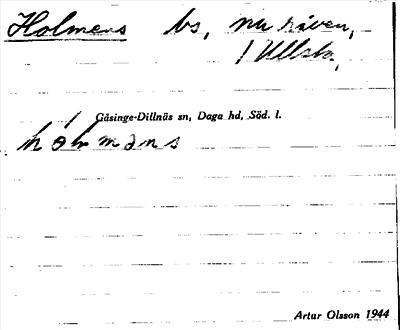 Holmens bs, nu riven,
1 Ullsta,
Gåsinge-Dillnäs sn, Daga hd, Söd. l.
hólmans
Artur Olsson 1944